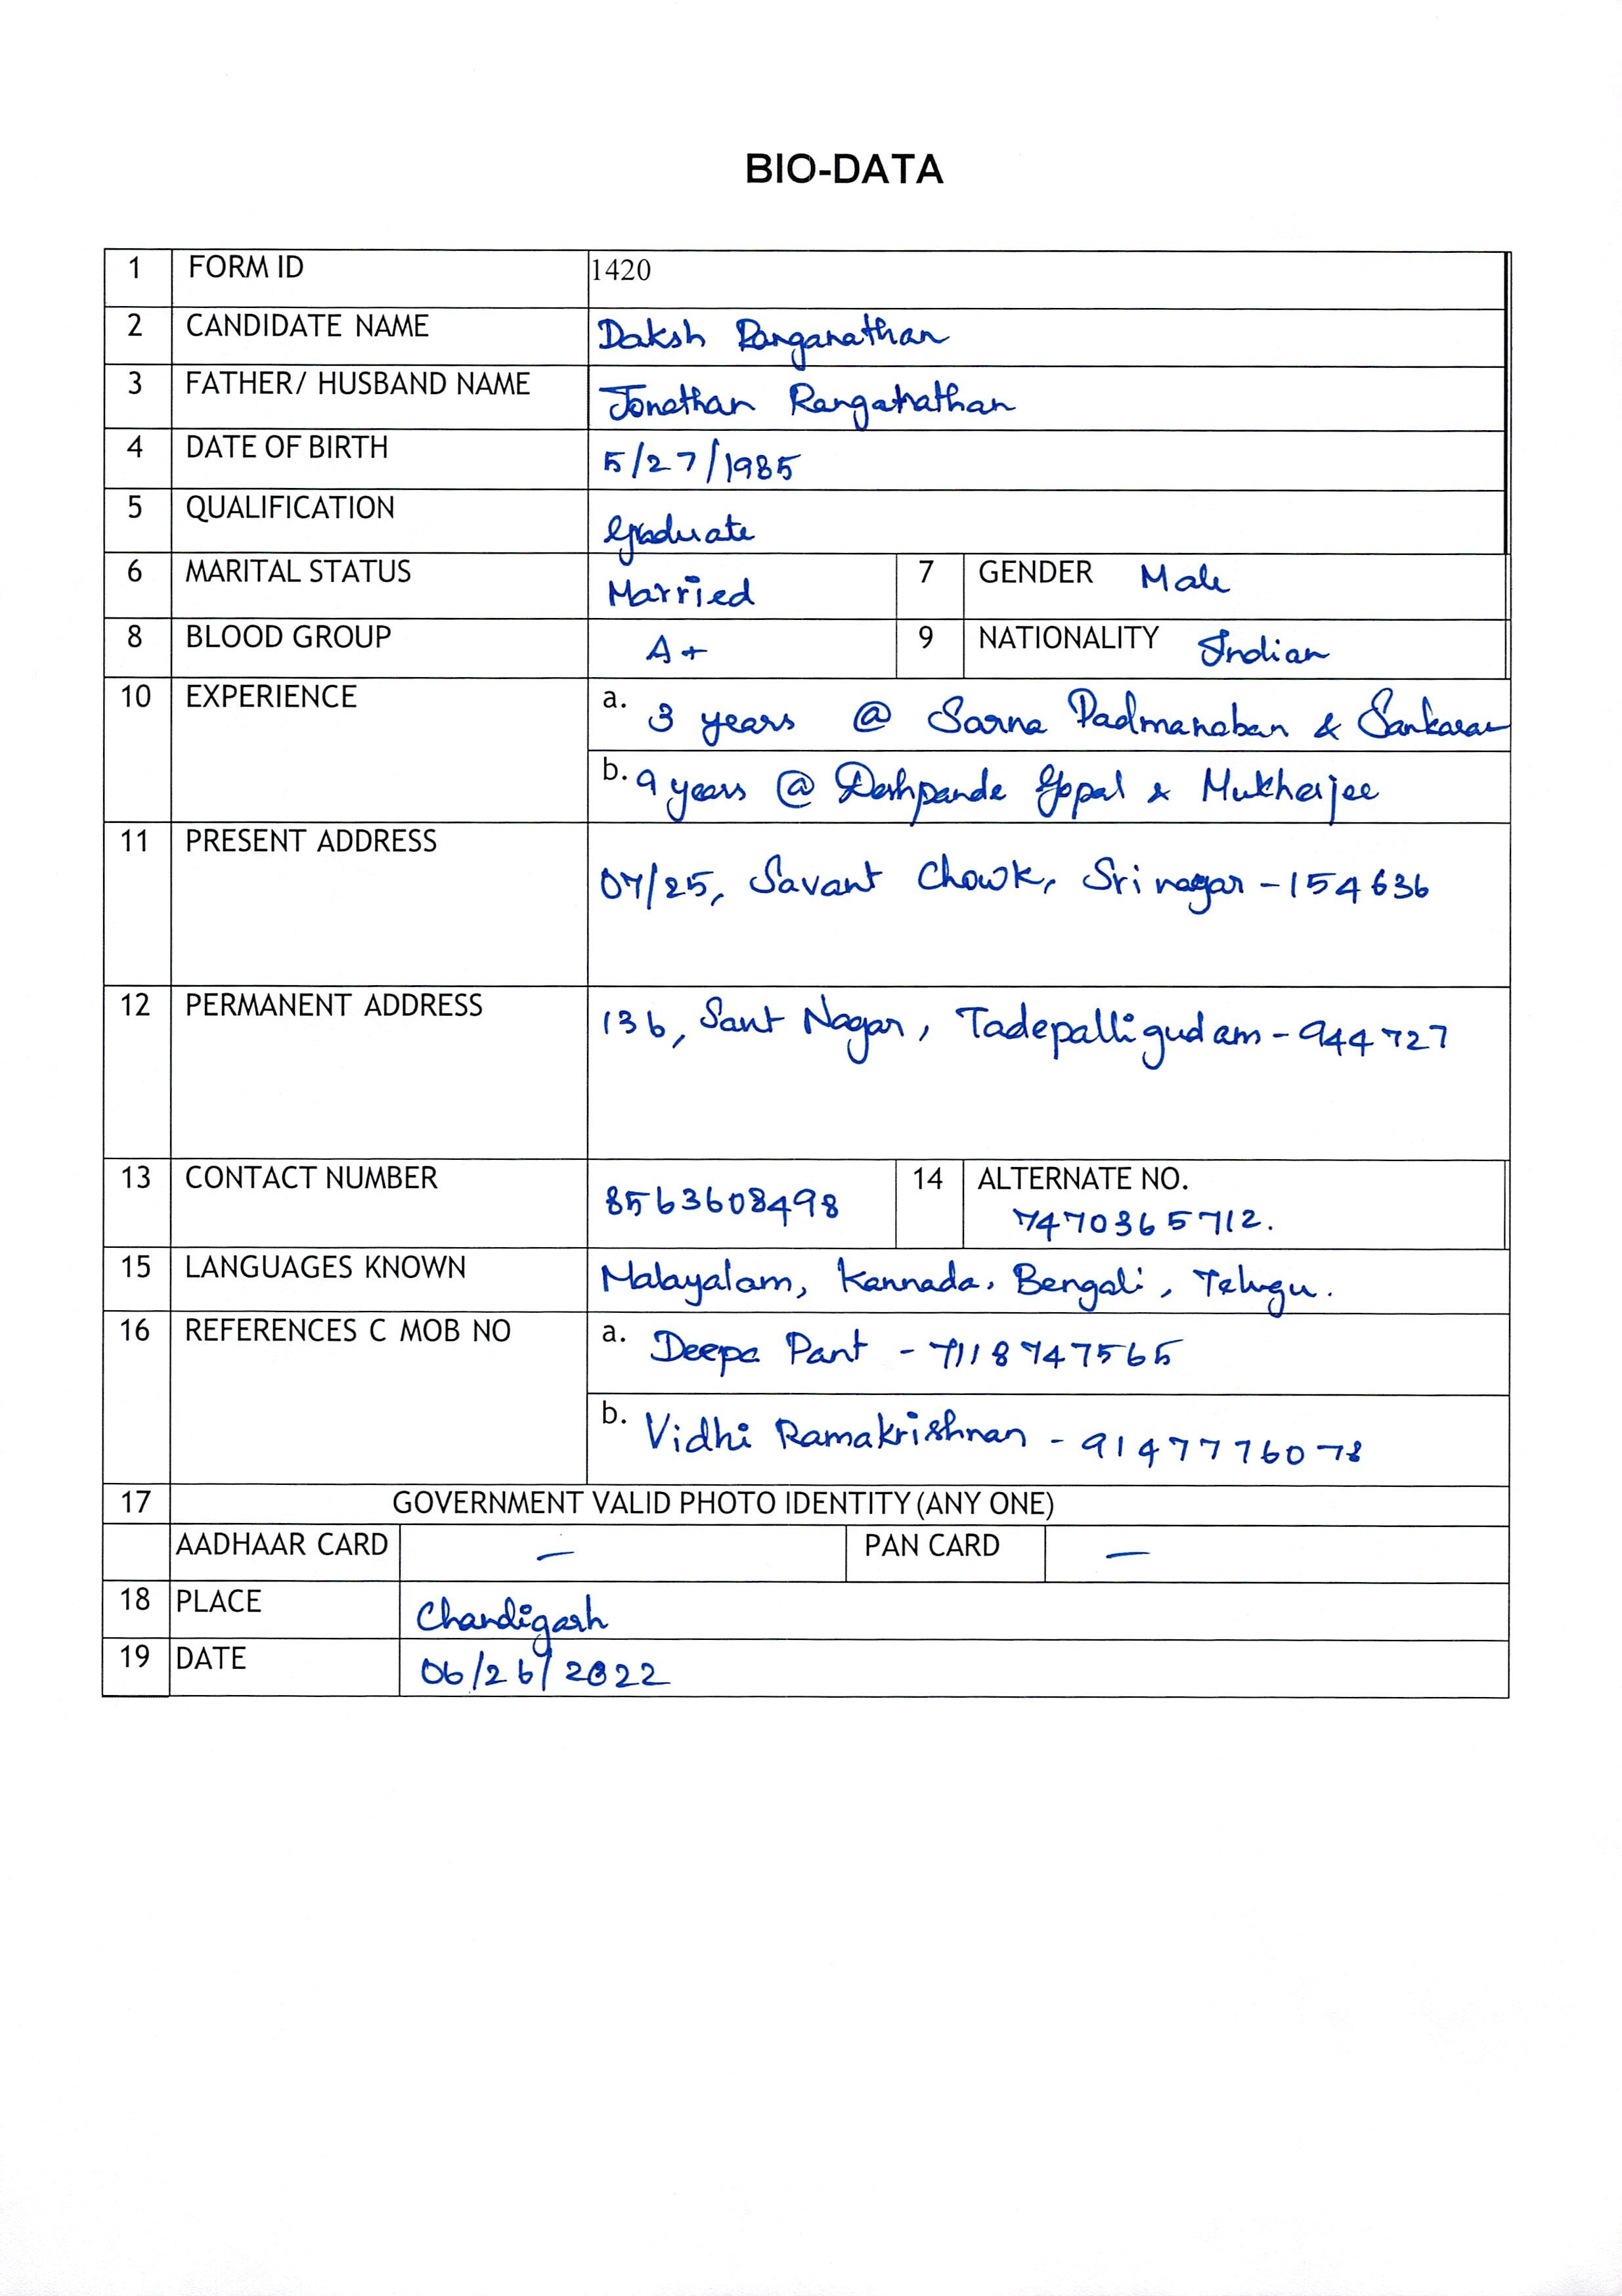 BIO-DATA
1 FORM ID 1420
2 CANDIDATE NAME Daksh Ranganathan
3 FATHER/ HUSBAND NAME Jonathan Ranganathan
4 DATE OF BIRTH 5/27/1985
5 QUALIFICATION Graduate
6 MARITAL STATUS Married 7 GENDER Male
8 BLOOD GROUP A+ 9 NATIONALITY Indian
10 EXPERIENCE a. 3 years @ Sarna Padmanaban & Sankaran
b. 9 years @ Deshpande Gopal & Mukherjee
11 PRESENT ADDRESS 07/25, Savant Chowk, Srinagar - 154636
12 PERMANENT ADDRESS 136, Sant Nagar, Tadepalligudam - 944727
13 CONTACT NUMBER 8563608498 14 ALTERNATE NO.
7470365712.
15 LANGUAGES KNOWN Malayalam, Kannada, Bengali, Telugu.
16 REFERENCES C MOB NO a. Deepa Pant - 7118747565
b. Vidhi Ramakrishnan - 9147776078
17 GOVERNMENT VALID PHOTO IDENTITY (ANY ONE)
AADHAAR CARD - PAN CARD -
18 PLACE Chandigarh
19 DATE 06/26/2022